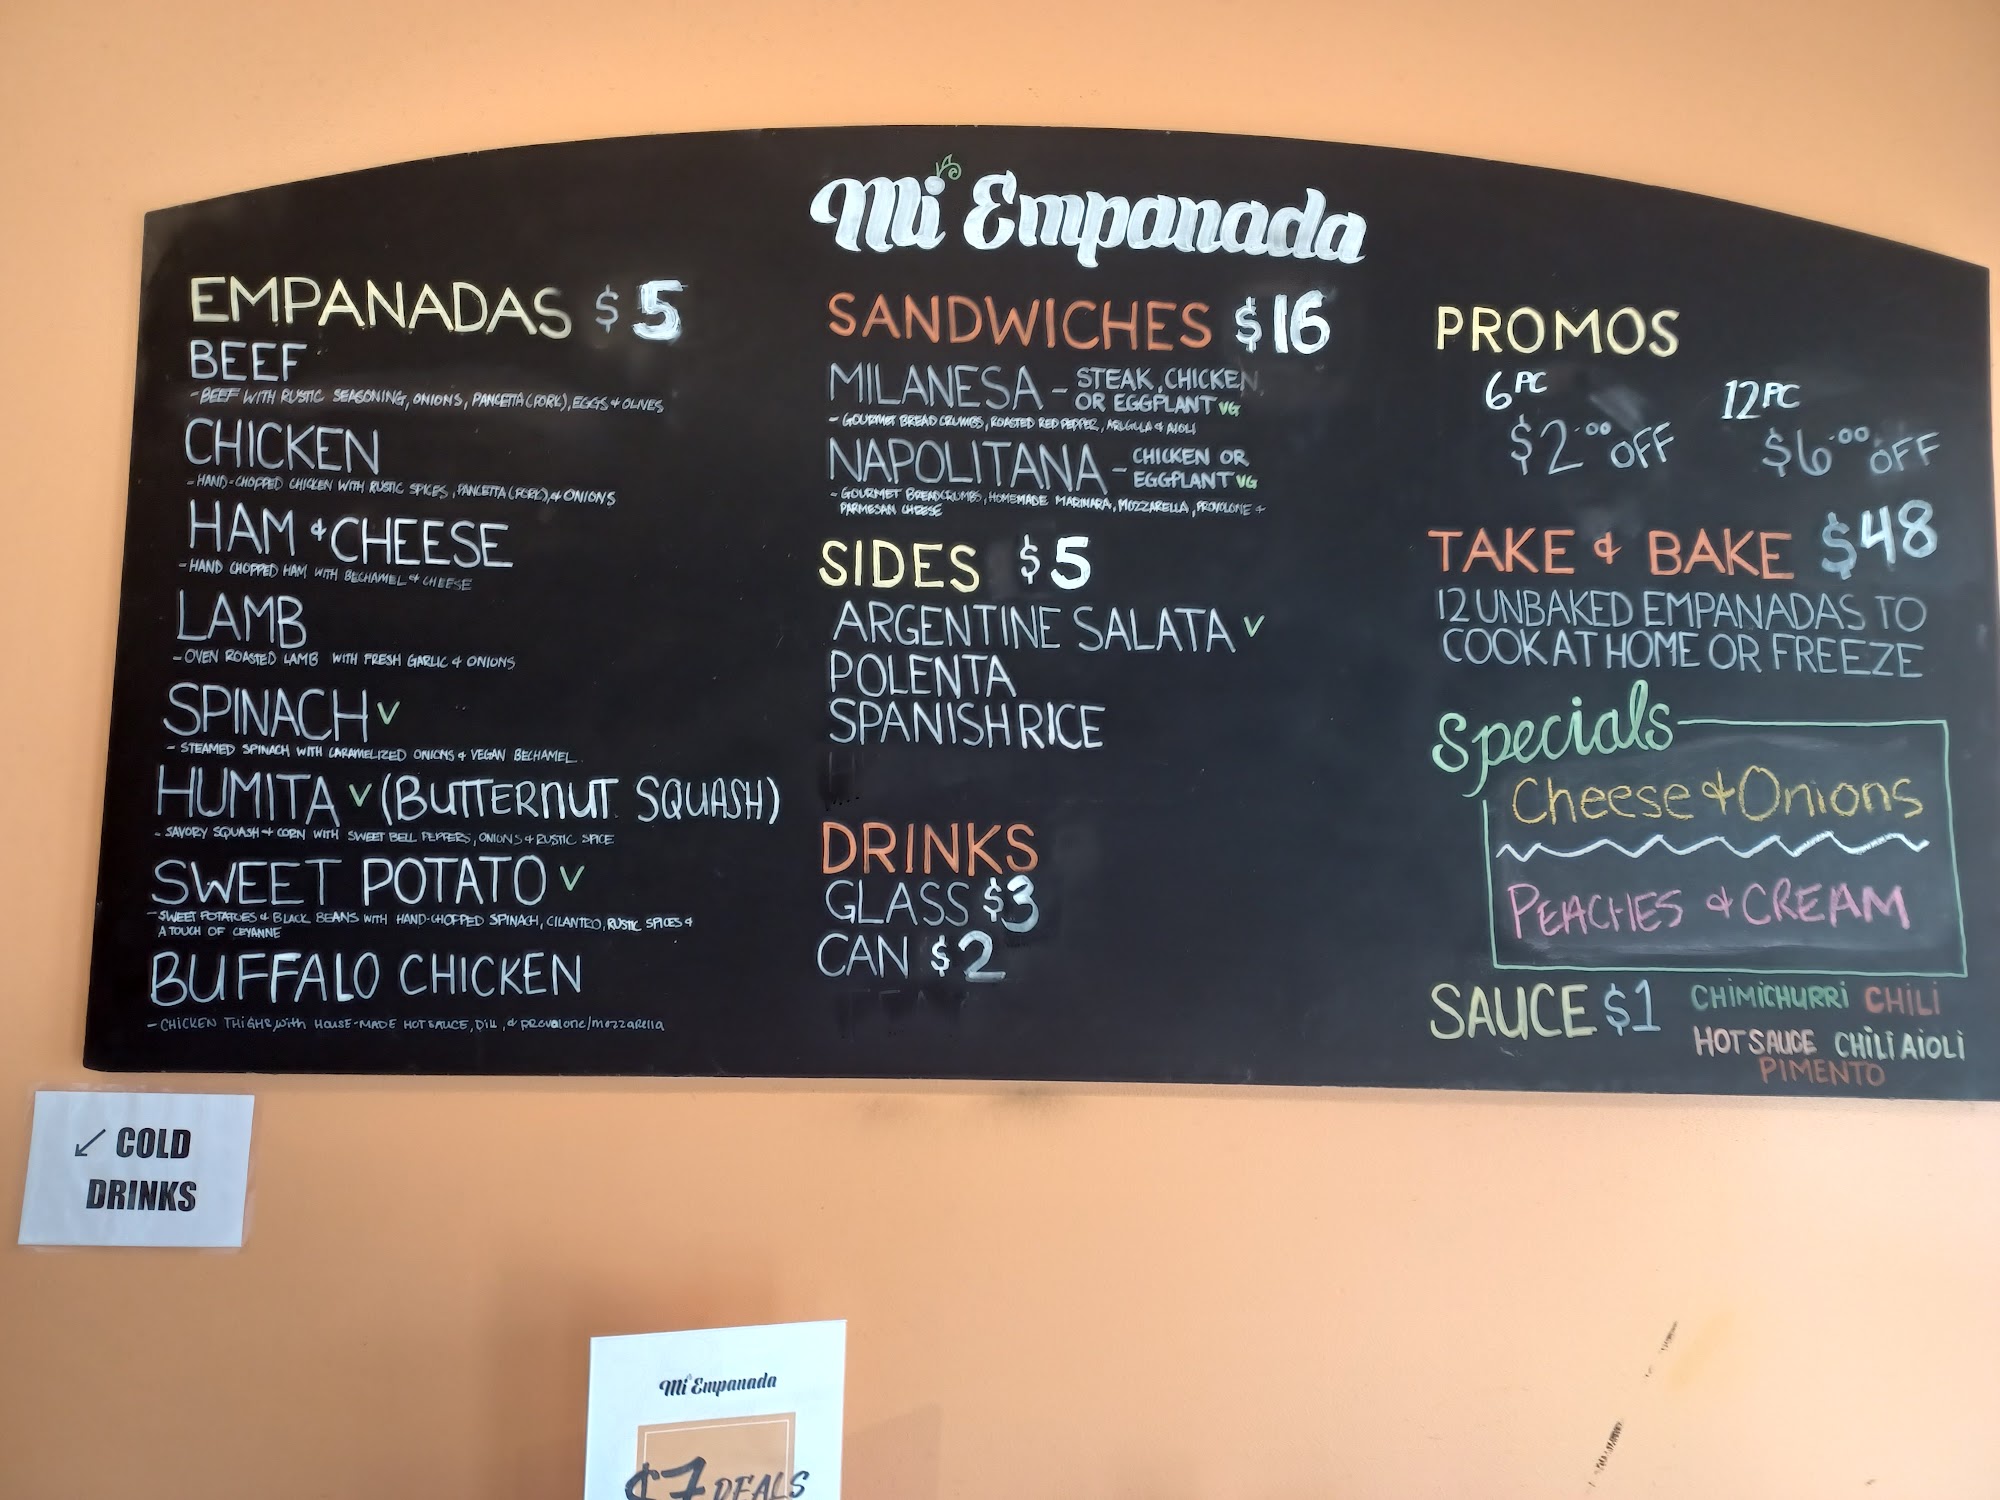 Mi Empanada
EMPANADAS $5
BEEF
- BEEF WITH RUSTIC SEASONING, ONIONS, PANCETTA (PORK), EGGS & OLIVES
CHICKEN
- HAND-CHOPPED CHICKEN WITH RUSTIC SPICES, PANCETTA (PORK), & ONIONS
HAM & CHEESE
- HAND CHOPPED HAM WITH BECHAMEL & CHEESE
LAMB
- OVEN ROASTED LAMB WITH FRESH GARLIC & ONIONS
SPINACH V
- STEAMED SPINACH WITH CARAMELIZED ONIONS & VEGAN BECHAMEL
HUMITA V (BUTTERNUT SQUASH)
- SAVORY SQUASH & CORN WITH SWEET BELL PEPPERS, ONIONS & RUSTIC SPICE
SWEET POTATO V
- SWEET POTATOES & BLACK BEANS WITH HAND-CHOPPED SPINACH, CILANTRO, RUSTIC SPICES &
A TOUCH OF CEYANNE
BUFFALO CHICKEN
- CHICKEN THIGHS, with HOUSE-MADE HOT SAUCE, Dill, & provolone/mozzarella
SANDWICHES $16
MILANESA - STEAK, CHICKEN
OR EGGPLANT VG
- GOURMET BREAD CRUMBS, ROASTED RED PEPPER, ARUGULA & AIOLI
NAPOLITANA - CHICKEN OR
EGGPLANT VG
- GOURMET BREADCRUMBS, HOMEMADE MARINARA, MOZZARELLA, PROVOLONE &
PARMESAN CHEESE
SIDES $5
ARGENTINE SALATA V
POLENTA
SPANISH RICE
DRINKS
GLASS $3
CAN $2
PROMOS
6 PC
$2.00 OFF
12 PC
$6.00 OFF
TAKE & BAKE $48
12 UNBAKED EMPANADAS TO
COOK AT HOME OR FREEZE
Specials
Cheese & Onions
PEACHES & CREAM
SAUCE $1
CHIMICHURRI CHILI
HOT SAUCE CHILI AIOLI
PIMENTO
↙ COLD
DRINKS
Mi Empanada
$7 DEALS